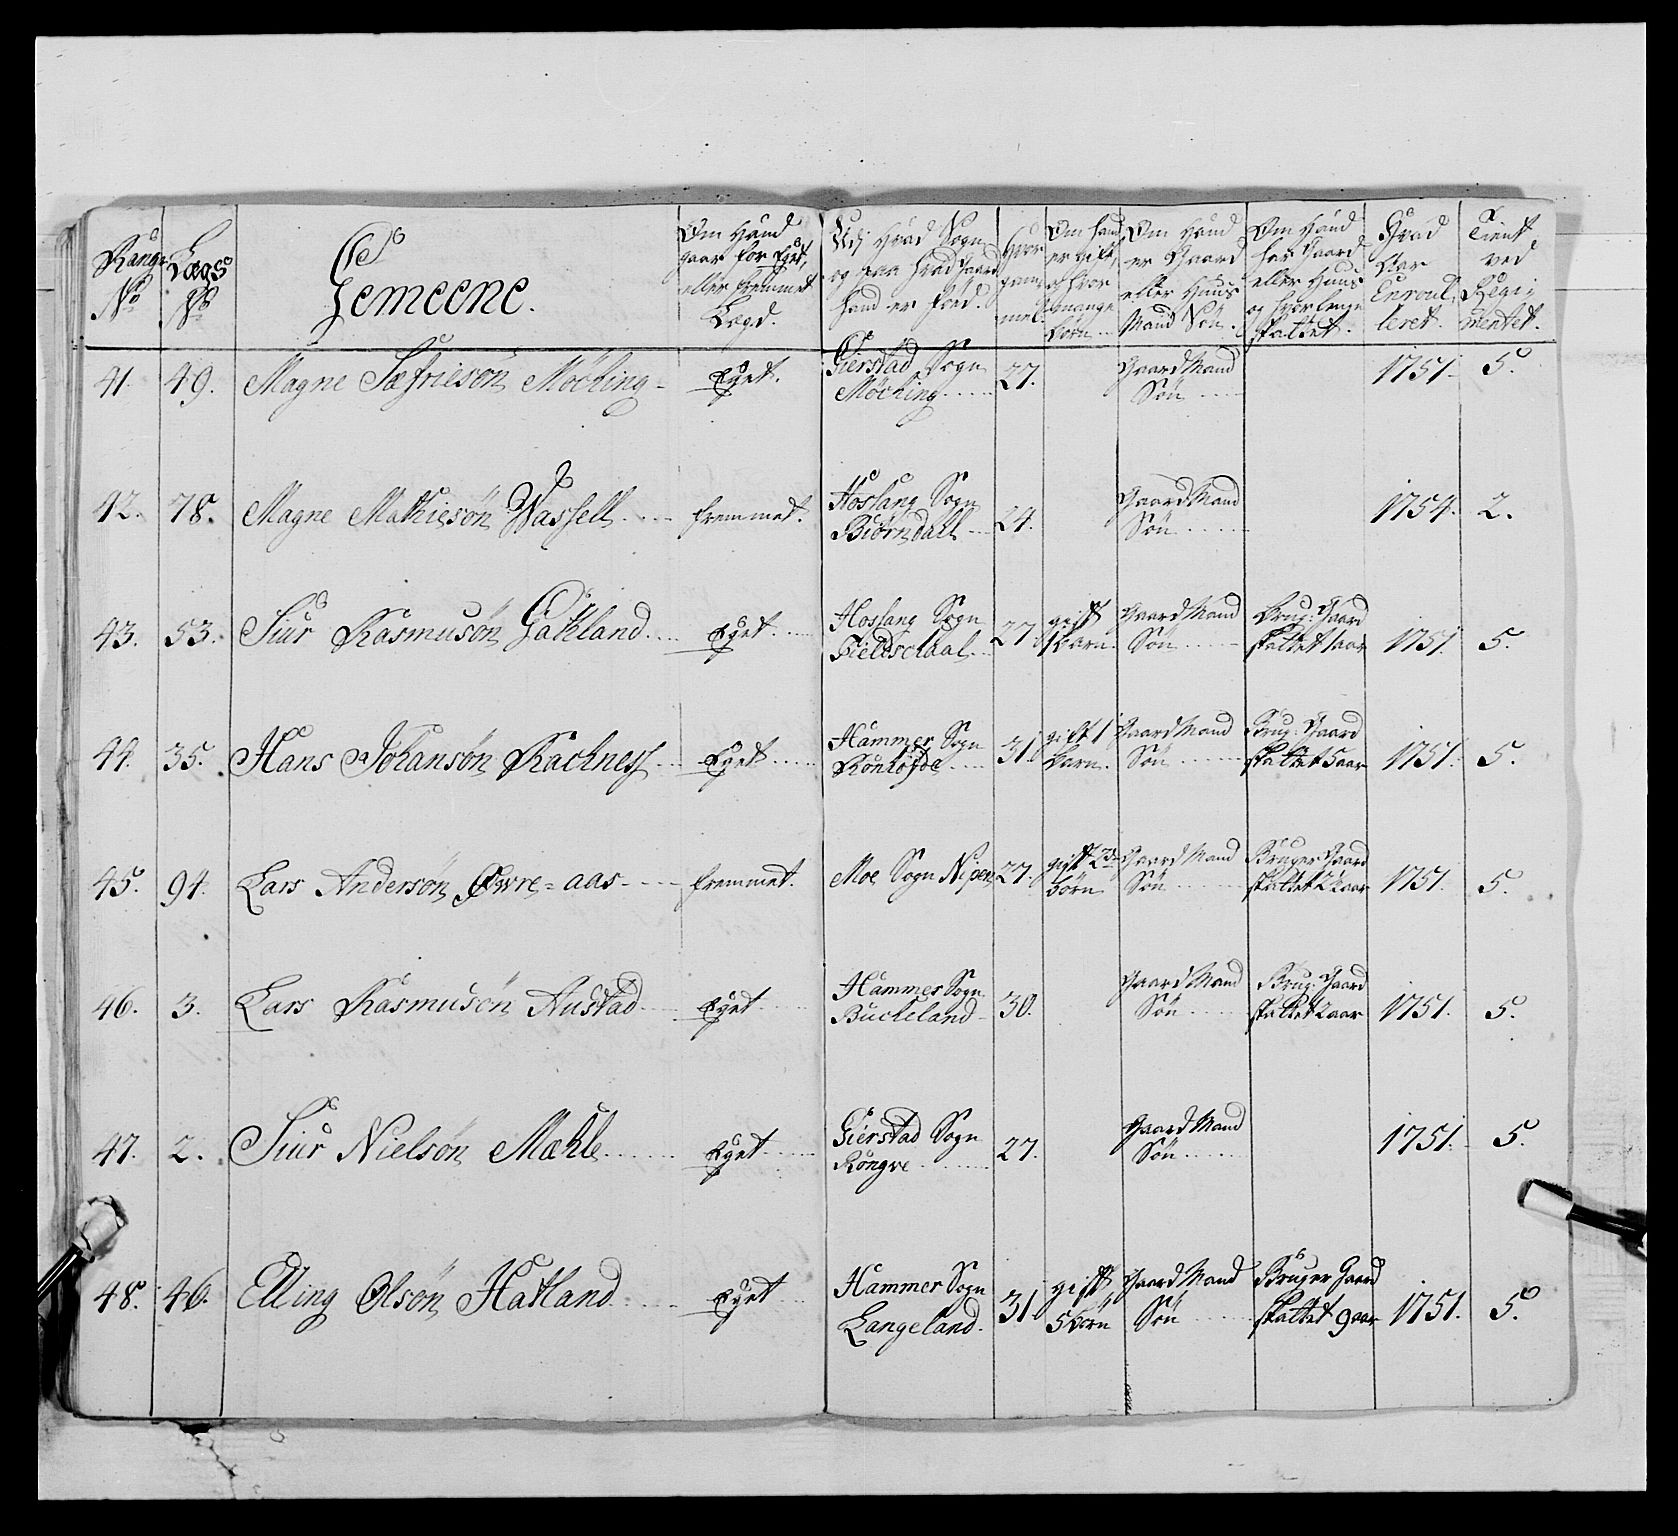 Range No
Lægs No
Gemeene.
Om Hand gaar for Eget, eller fremmet Lægd.
Udj Hvad Sogn og paa hvad Gaard hand er föed.
Hvor gam̄mel
Om hand er gift, og hvor mange börn
Om Hand er Gaard eller Huus Mand Sön.
Om Hand har Gaard eller Huus og hvor lenge skattet.
Hvad Aar Enroulleret.
Tient ved Regimentet.
41. 49. Magne Sæfriesön Möcking - Eget. Gierstad Sogn Möcking 27. Gaard Mand Sön 1751. 5.
42. 78. Magne Mathiesön Wassell fremmet. Hossang Sogn Biörndall 24. Gaard Mand Sön 1754. 2.
43. 53. Siur Rasmusön Gakland Eget Hossang Sogn 27. gift 1 barn. Gaard Mand Sön Brug: Gaard skattet 1 aar 1751. 5.
44. 35. Hans Johansön Rackness Eget Hammer Sogn 31. gift 1 barn. Gaard Mand Sön Brug: Gaard skattet 5 aar 1751. 5.
45. 94. Lars Andersön Öevre=aas - fremmet. Moe Sogn Nipen 27. gift 2de börn Gaard Mand Sön Bruger Gaard skattet 2 aar 1751. 5.
46. 3. Lars Rasmusön Austad Eget Hammer Sogn Buckeland 30. Gaard Mand Sön Brug: Gaard skattet 2 aar 1751. 5.
47. 2. Siur Nielsön Mæhle Eget Gierstad Sogn Röngve 27. Gaard Mand Sön 1751. 5.
48. 46. Elling Olsön Hatland Eget Hammer Sogn Langeland. 31. gift, 5 börn Gaard Mand Sön Bruger Gaard skattet 9 aar 1751. 5.